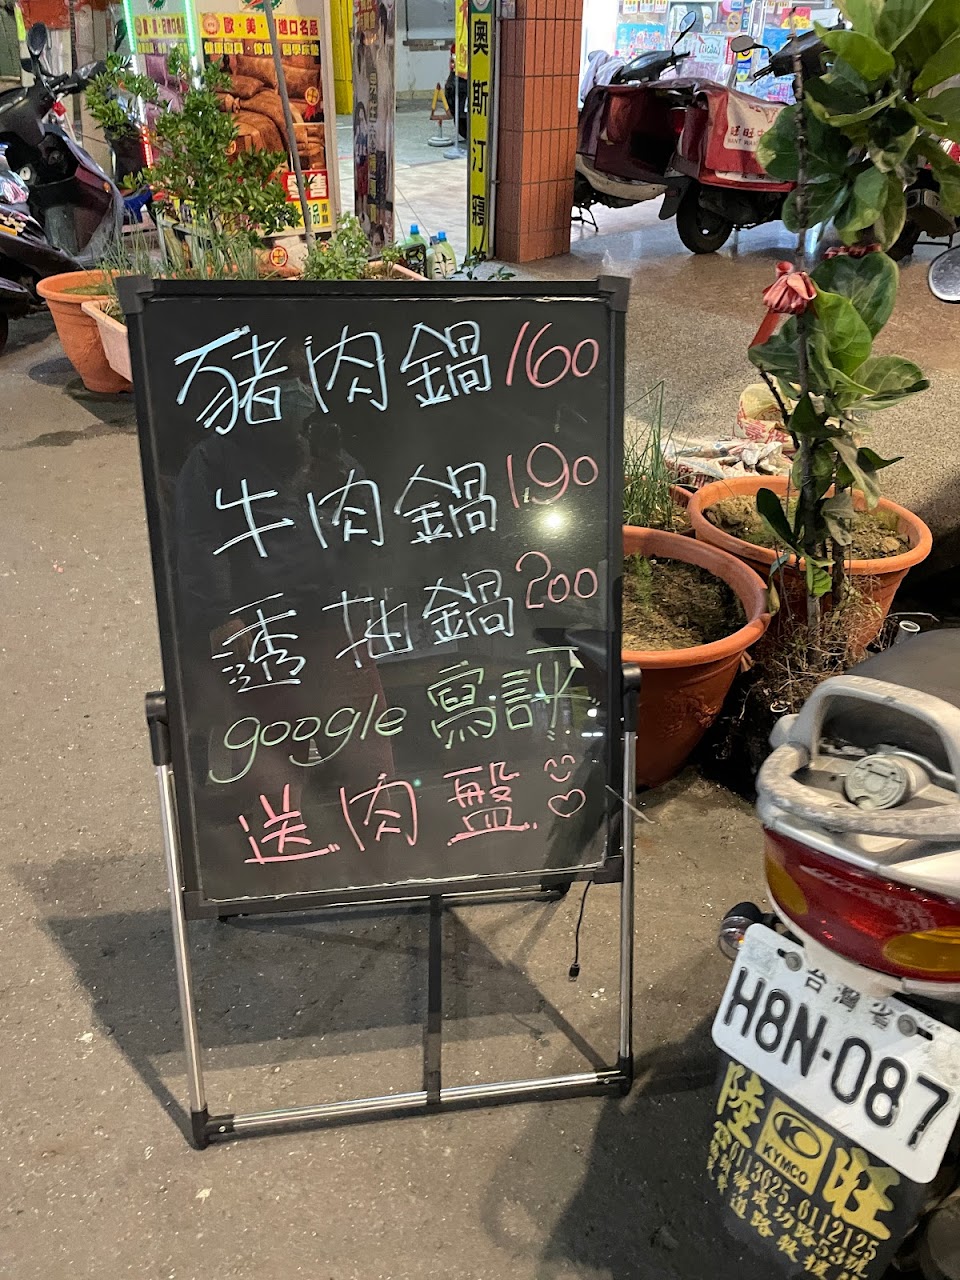 歐·美 進口名品
奧斯汀寢
旺旺
WANT WANT
豬肉鍋 160
牛肉鍋 190
透抽鍋 200
google 寫評
送肉盤
台灣省
H8N-087
陸旺
KYMCO
6113625.6112125